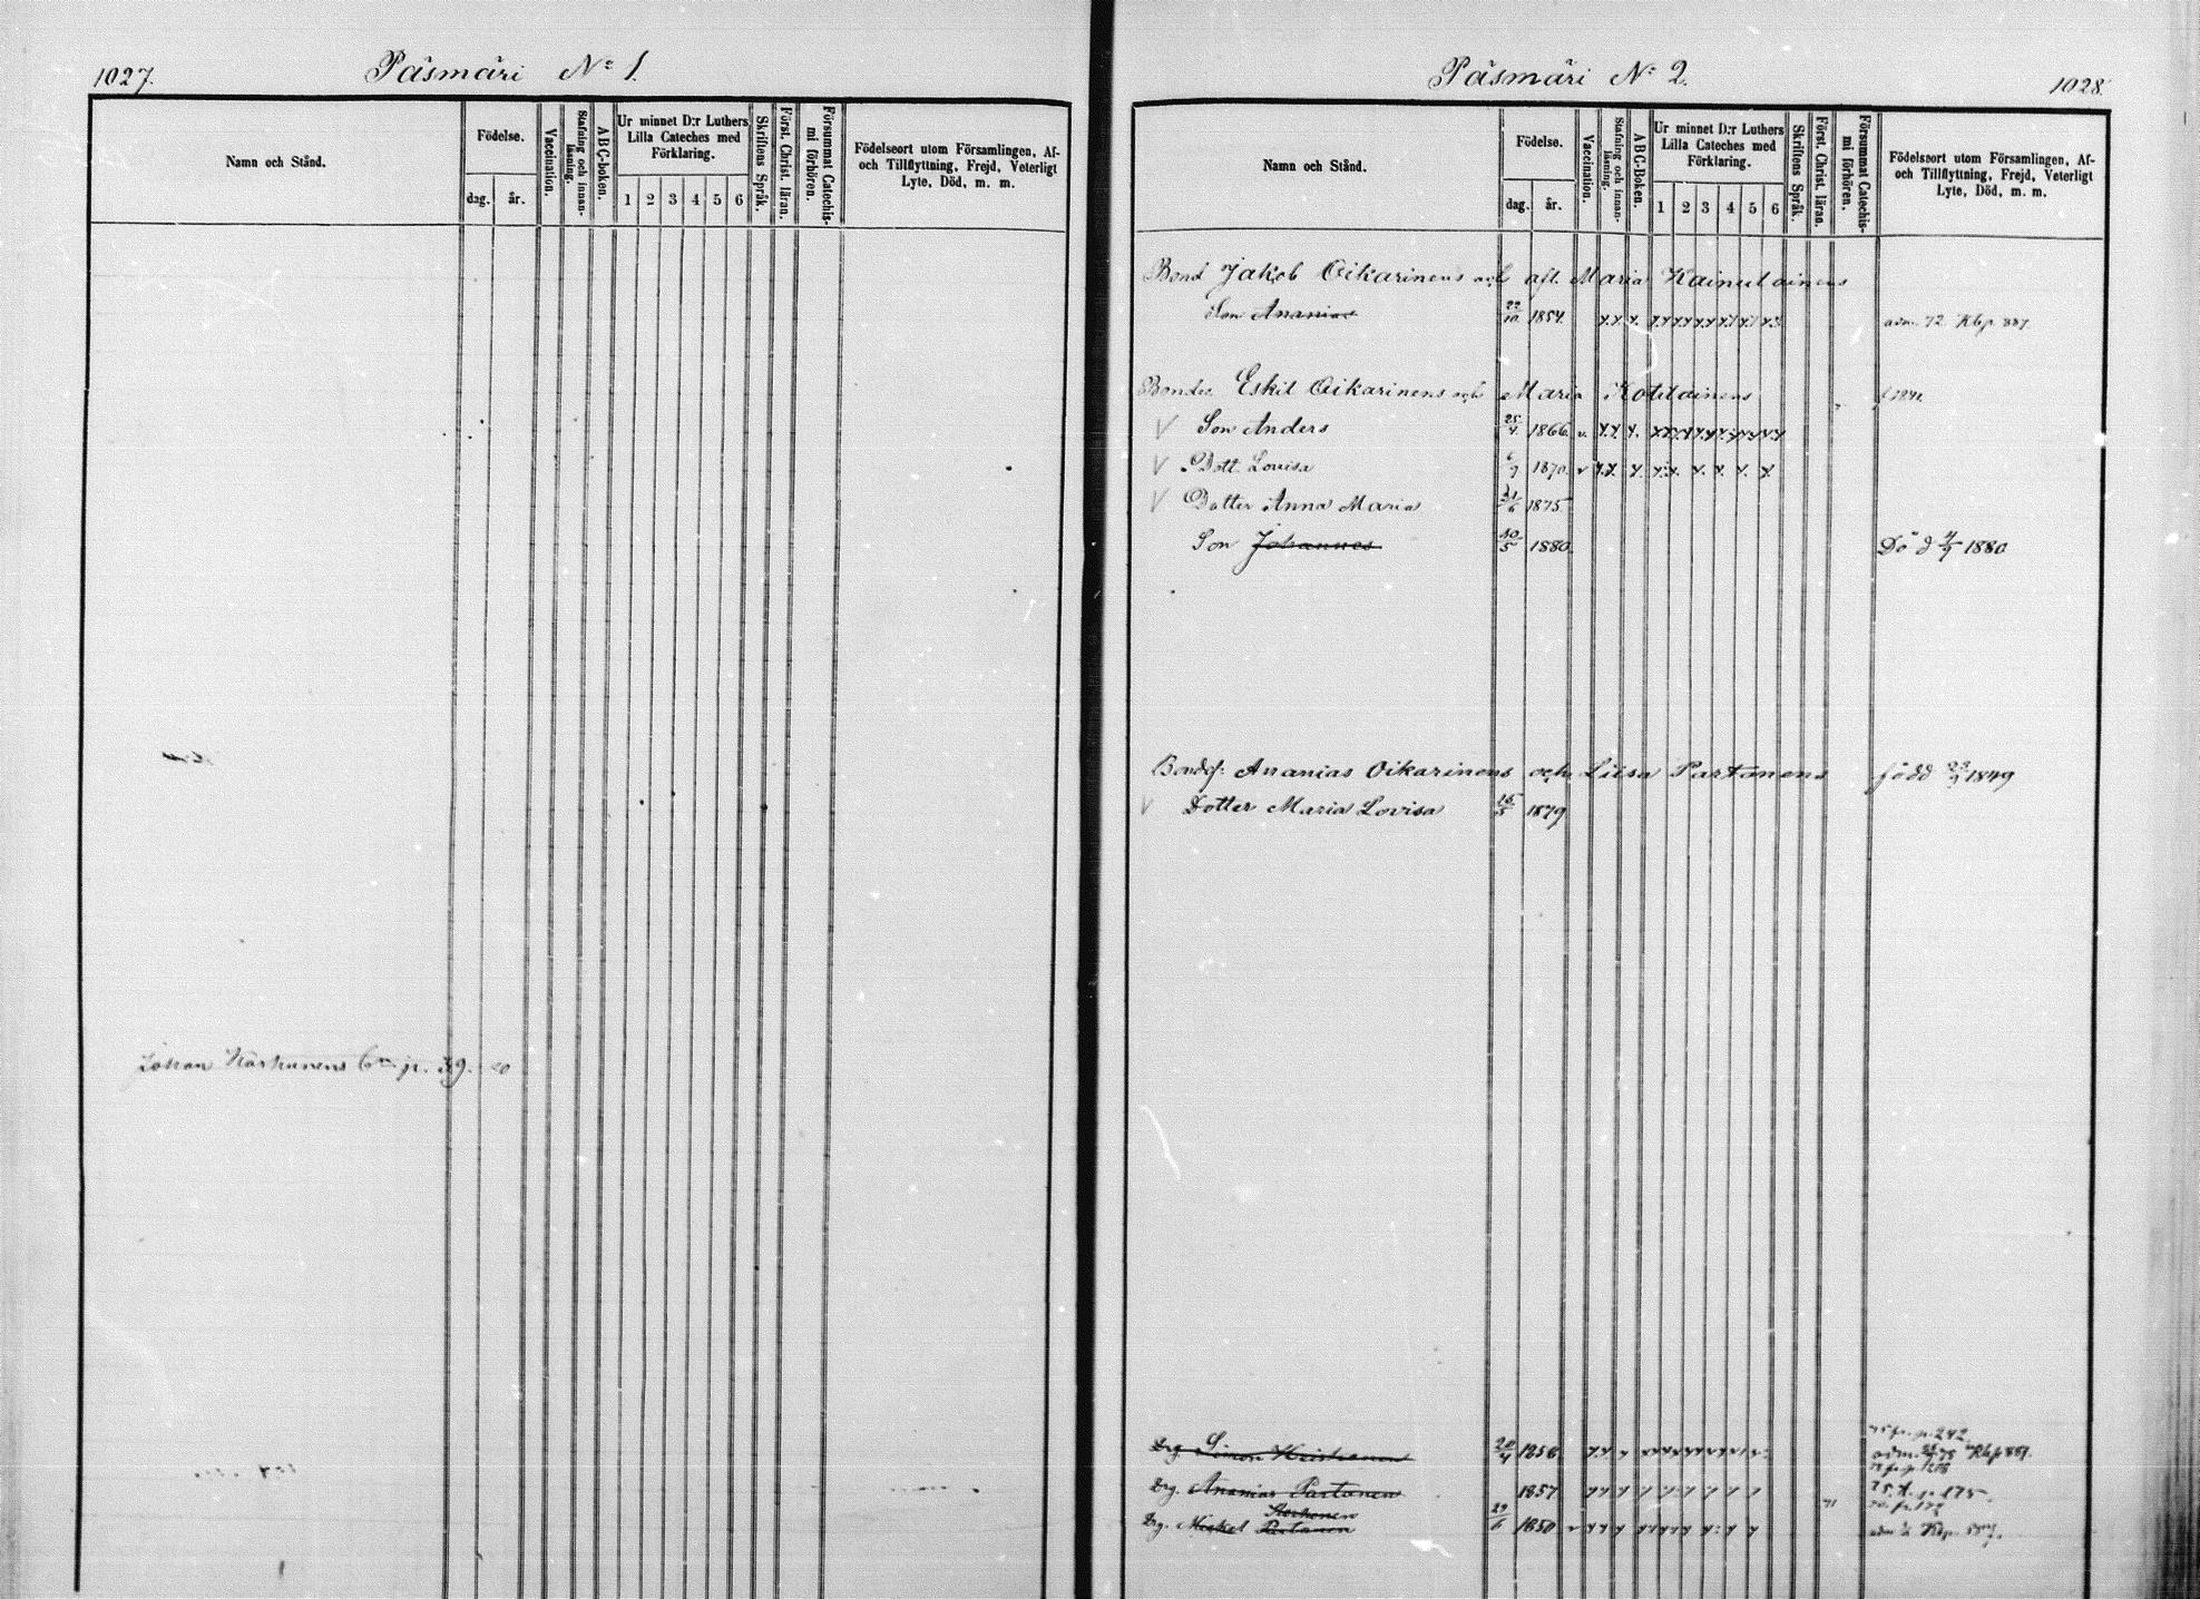 1027.
Päsmäri No 1.
Namn och Stånd.
Födelse.
dag.
år.
Vaccination.
Stafning och innan-
läsning.
ABC-boken.
Ur minnet D:r Luthers
Lilla Cateches med
Förklaring.
1 2 3 4 5 6
Skriftens Språk.
Först. Christ. läran.
Försummat Catechis-
mi förhören.
Födelseort utom Församlingen, Af-
och Tillflyttning, Frejd, Veterligt
Lyte, Död, m. m.
Johan
Päsmäri No 2.
1028.
Namn och Stånd.
Födelse.
dag.
år.
Vaccination.
Stafning och innan-
läsning.
ABC-Boken.
Ur minnet D:r Luthers
Lilla Cateches med
Förklaring.
1 2 3 4 5 6
Skriftens Språk.
Först. Christ. läran.
Försummat Catechis-
mi förhören.
Födelseort utom Församlingen, Af-
och Tillflyttning, Frejd, Veterligt
Lyte, Död, m. m.
Bond Jakob Oikarinens och afl. Maria Kainulainens
Son Ananias 22/10 1854. adm. 72 Kbp. 887.
Bonde Eskil Oikarinens och Maria Kotilainens
V Son Anders 25/4 1866
V Dott. Lovisa 6/9 1870.
V Dotter Anna Maria 21/6 1875
Son Johannes 10/5 1880 Dö d 4/9 1880
Ananias Oikarinens och Liisa Partanens född 23/9 1849
V Dotter Maria Lovisa 15/5 1879
Drg. Simon 20/4 1856 p. 242
adm. Kbp 887.
Drg. Ananias Partanen 1857
Drg. Mickel Partanen Korhonen 29/6 1850